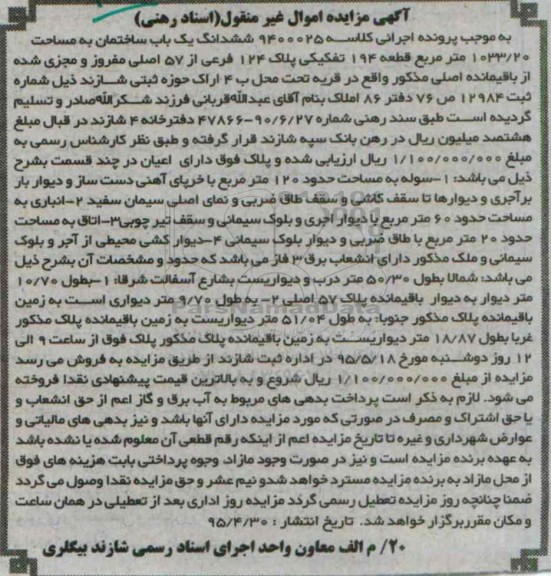 آگهی مزایده اموال غیر منقول(اسناد رهنی)
به موجب پرونده اجرائی کلاسه ۹۴۰۰۰۲۵ ششدانگ یک باب ساختمان به مساحت
۱۰۳۳/۲۰ متر مربع قطعه ۱۹۴ تفکیکی پلاک ۱۲۴ فرعی از ۵۷ اصلی مفروز و مجزی شده
از باقیمانده اصلی مذکور واقع در قریه تحت محل ب ۴ اراک حوزه ثبتی شازند ذیل شماره
ثبت ۱۲۹۸۴ ص ۷۶ دفتر ۸۶ املاک بنام آقای عبدالله قربانی فرزند شکرالله صادر و تسلیم
گردیده است طبق سند رهنی شماره ۹۰/۶/۲۷-۴۷۸۶۶ دفترخانه ۴ شازند در قبال مبلغ
هشتصد میلیون ریال در رهن بانک سپه شازند قرار گرفته و طبق نظر کارشناس رسمی به
مبلغ ۱/۱۰۰/۰۰۰/۰۰۰ ریال ارزیابی شده و پلاک فوق دارای اعیان در چند قسمت بشرح
ذیل می باشد: ۱-سوله به مساحت حدود ۱۲۰ متر مربع با خرپای آهنی دست ساز و دیوار بار
برآجری و دیوارها تا سقف کاشی و سقف طاق ضربی و نمای اصلی سیمان سفید ۲-انباری به
مساحت حدود ۶۰ متر مربع با دیوار آجری و بلوک سیمانی و سقف تیر چوبی۳-اتاق به مساحت
حدود ۲۰ متر مربع با طاق ضربی و دیوار بلوک سیمانی ۴-دیوار کشی محیطی از آجر و بلوک
سیمانی و ملک مذکور دارای انشعاب برق ۳ فاز می باشد که حدود و مشخصات آن بشرح ذیل
می باشد: شمالا بطول ۵۰/۳۰ متر درب و دیواریست بشارع آسفالت شرقا: ۱-بطول ۱۰/۷۰
متر دیوار به دیوار باقیمانده پلاک ۵۷ اصلی ۲- به طول ۹/۷۰ متر دیواری است به زمین
باقیمانده پلاک مذکور جنوبا: به طول ۵۱/۰۴ متر دیواریست به زمین باقیمانده پلاک مذکور
غربا بطول ۱۸/۸۷ متر دیواریست به زمین باقیمانده پلاک مذکور پلاک فوق از ساعت ۹ الی
۱۲ روز دوشنبه مورخ ۹۵/۵/۱۸ در اداره ثبت شازند از طریق مزایده به فروش می رسد
مزایده از مبلغ ۱/۱۰۰/۰۰۰/۰۰۰ ریال شروع و به بالاترین قیمت پیشنهادی نقدا فروخته
می شود. لازم به ذکر است پرداخت بدهی های مربوط به آب برق و گاز اعم از حق انشعاب و
یا حق اشتراک و مصرف در صورتی که مورد مزایده دارای آنها باشد و نیز بدهی های مالیاتی و
عوارض شهرداری و غیره تا تاریخ مزایده اعم از اینکه رقم قطعی آن معلوم شده یا نشده باشد
به عهده برنده مزایده است و نیز در صورت وجود مازاد، وجوه پرداختی بابت هزینه های فوق
از محل مازاد به برنده مزایده مسترد خواهد شدو نیم عشر و حق مزایده نقدا وصول می گردد
ضمنا چنانچه روز مزایده تعطیل رسمی گردد مزایده روز اداری بعد از تعطیلی در همان ساعت
و مکان مقرربرگزار خواهد شد. تاریخ انتشار : ۹۵/۴/۳۰
۲۰/ م الف معاون واحد اجرای اسناد رسمی شازند بیگلری